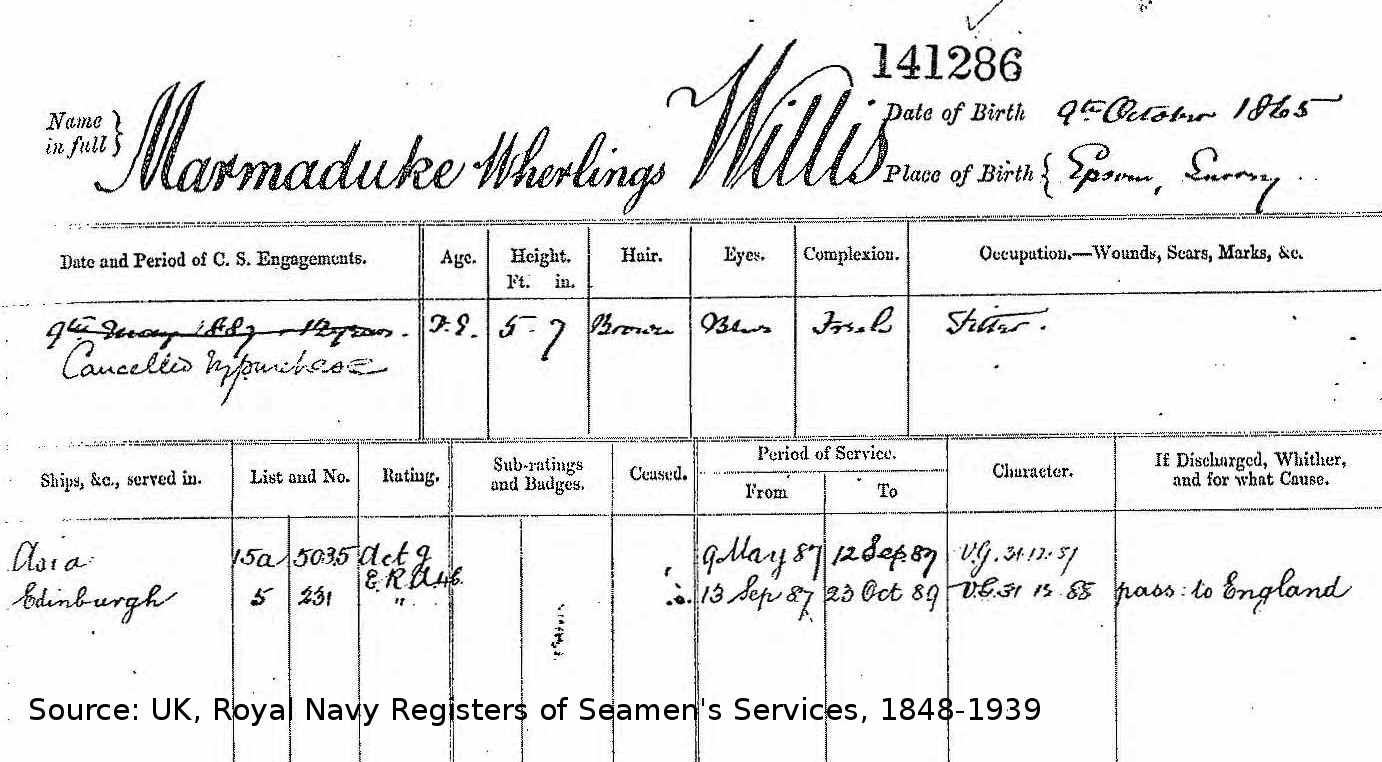 141286
Name in full } Marmaduke Wherlings Willis
Date of Birth 9th October 1865
Place of Birth { Epsom, Surrey
Date and Period of C. S. Engagements. Age. Height. Ft. in. Hair. Eyes. Complexion. Occupation.—Wounds, Scars, Marks, &c.
9th May 1887 12 years. 5. 7 Brown Blue Fresh Fitter.
Cancelled by purchase
Ships, &c., served in. List and No. Rating. Sub-ratings and Badges. Ceased. Period of Service. From To Character. If Discharged, Whither, and for what Cause.
Asia 15a 5035 Act g 9 May 87 12 Sep 87 V.G. 31.12.87
E.R.A 4
Edinburgh 5 231 " 13 Sep 87 23 Oct 89 V.G. 31 12 88 pass: to England
Source: UK, Royal Navy Registers of Seamen's Services, 1848-1939